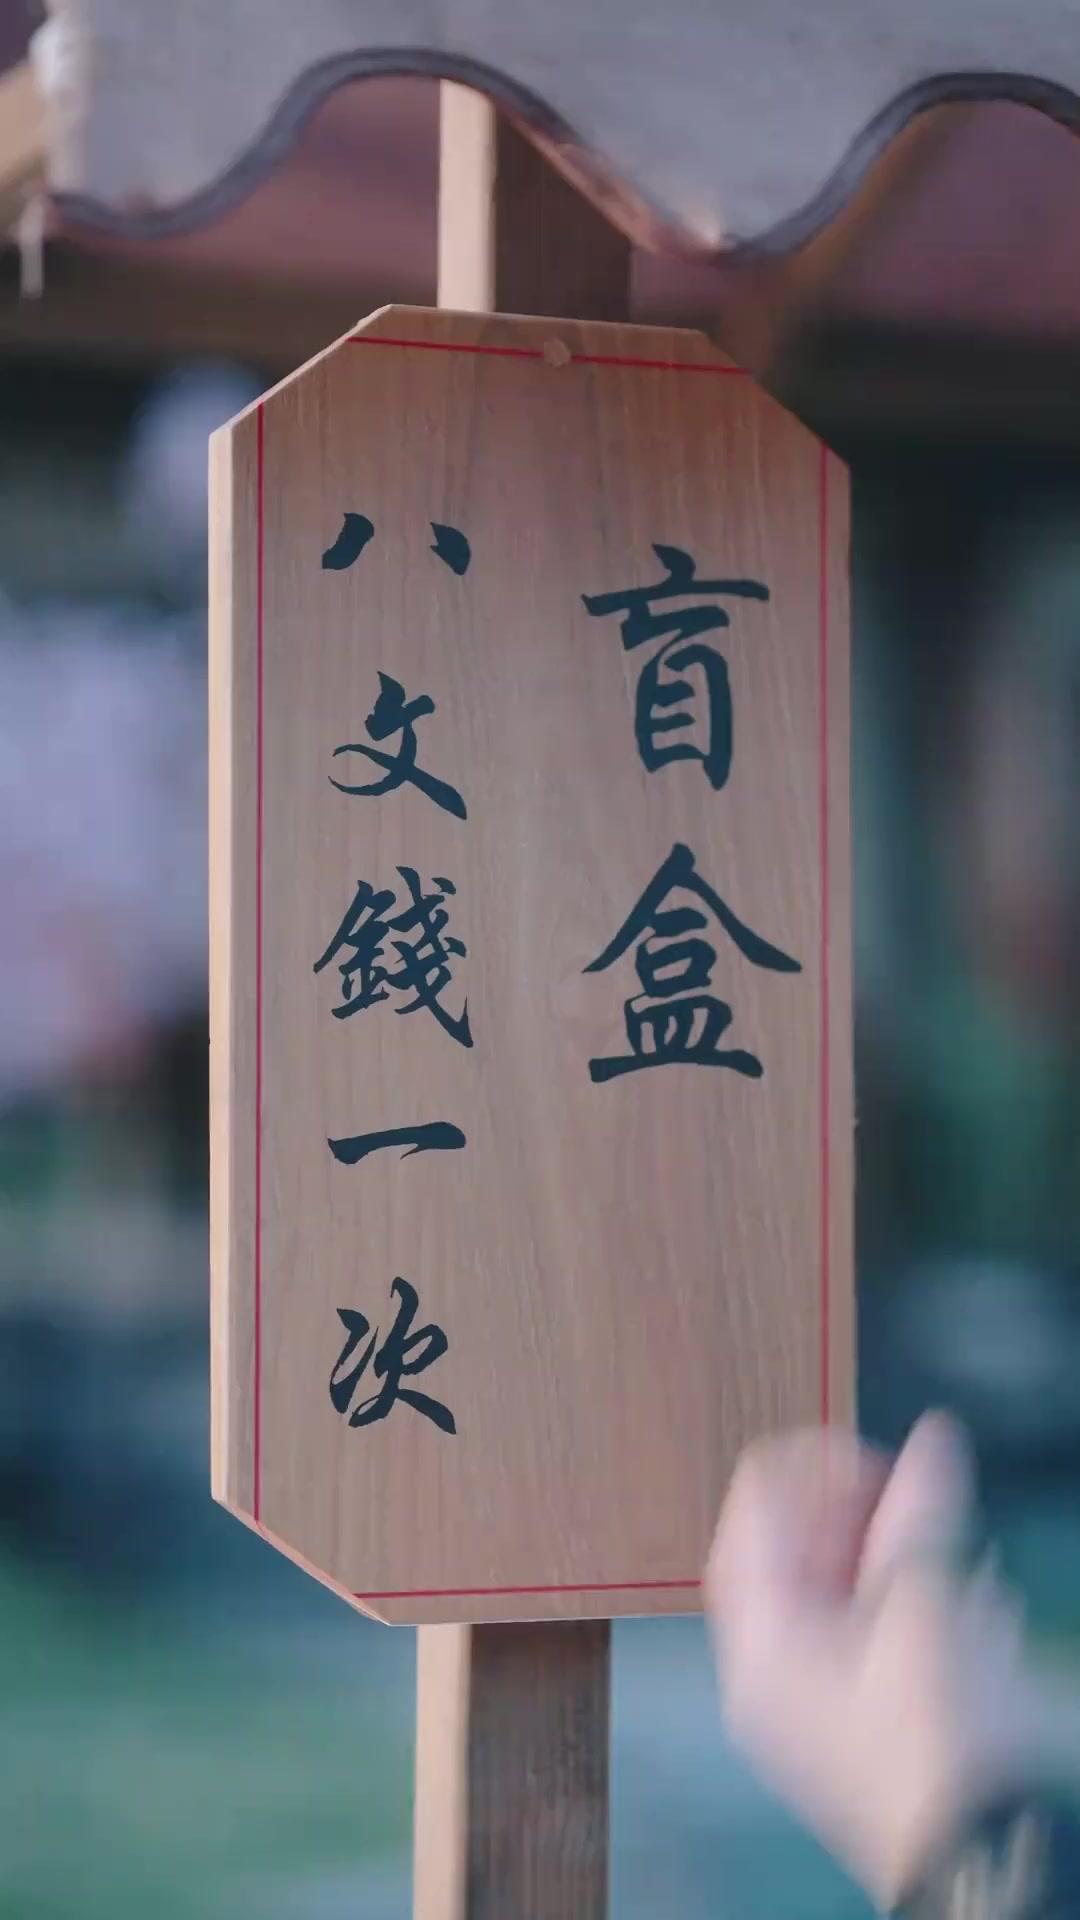 盲盒
八文錢一次